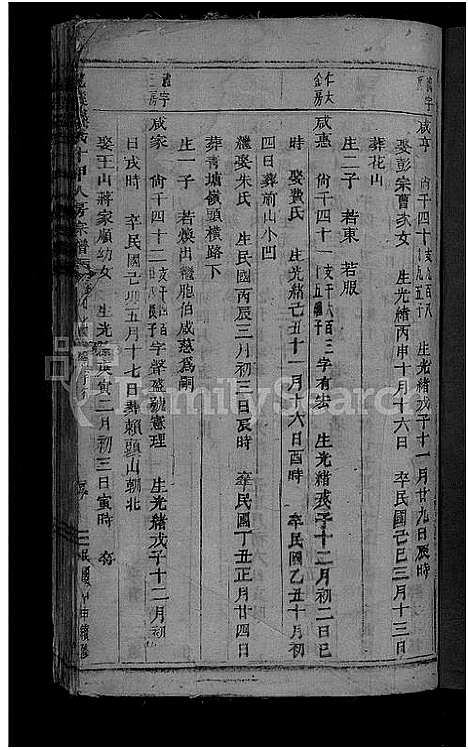 咸亨 尙千四十 生光緒戊子十一月廿九日辰時
娶彭宗曹次女 生光緒丙申十月十六日 卒民國己巳三月十三日
葬花山
生二子 若東 若服
仁大
金房
咸惠 尙千四十一 支千六百三 十五繼子 字有宏 生光緒戊子十二月初二日巳
時 娶費氏 生光緒己丑十一月十六日酉時 卒民國乙丑十月初
四日葬前山小凹
繼娶朱氏 生民國丙辰三月初三日辰時 卒民國丁丑正月廿四日
葬靑塘嶺頭橫路下
生一子 若煥出繼胞伯咸慈爲嗣
三房
咸家 尙千四十二 字聲盛號憲理 生光緒戊子十二月初
日戌時 卒民國己卯五月十七日葬賴頭山朝北
娶王山蔣家願幼女 生光緒庚寅二月初三日寅時 卒
甲人房宗譜
民國甲申續修
FamilySearch